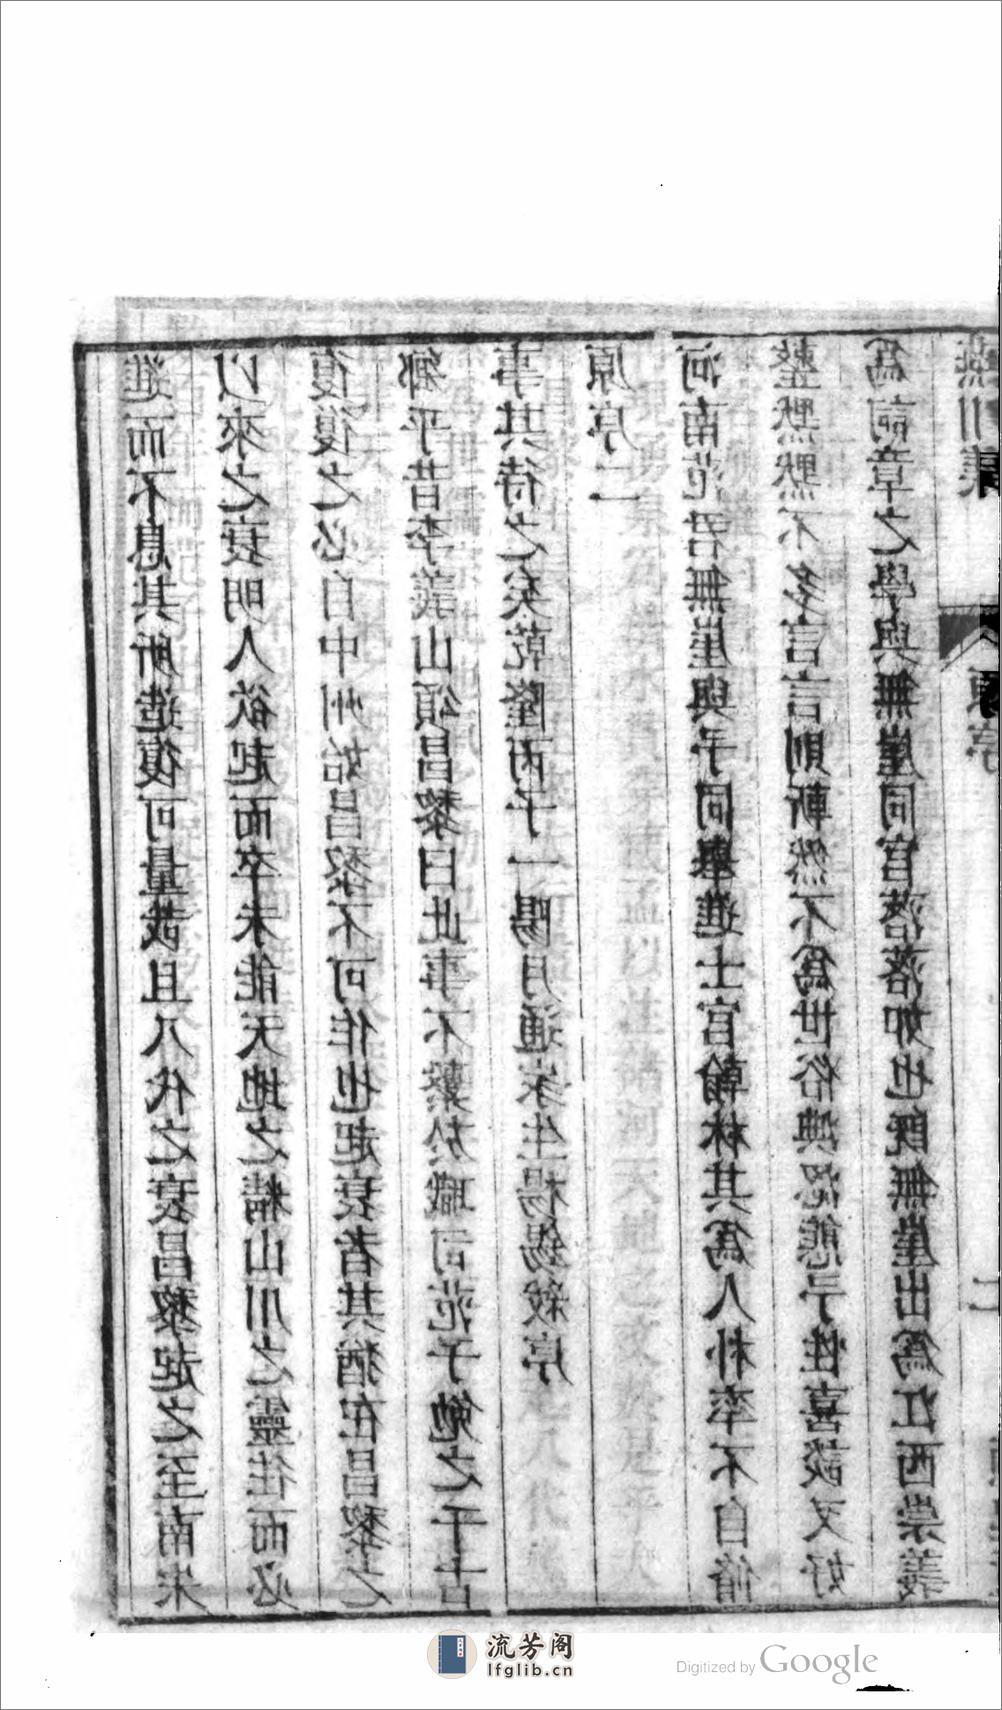 進而不息其所造復可量哉且八代之衰昌黎起之至南宋
以來之衰明人欲起而卒未能天地之精山川之靈往而必
復復之必自中州始昌黎不可作也起衰者其猶在昌黎之
鄉乎昔李義山頌昌黎曰此事不繫於職司范子勉之千古
事其待之矣乾隆丙子一陽月通家生楊錫紱序
原序二
河南范君無崖與予同舉進士官翰林其為人朴率不自脩
整默默不多言言則斬然不為世俗淟涊態予性喜談又好
為詞章之學與無崖同官落落如也既無崖出為江西崇義
燕川集
原序
流芳阁
lfglib.cn
Digitized by Google